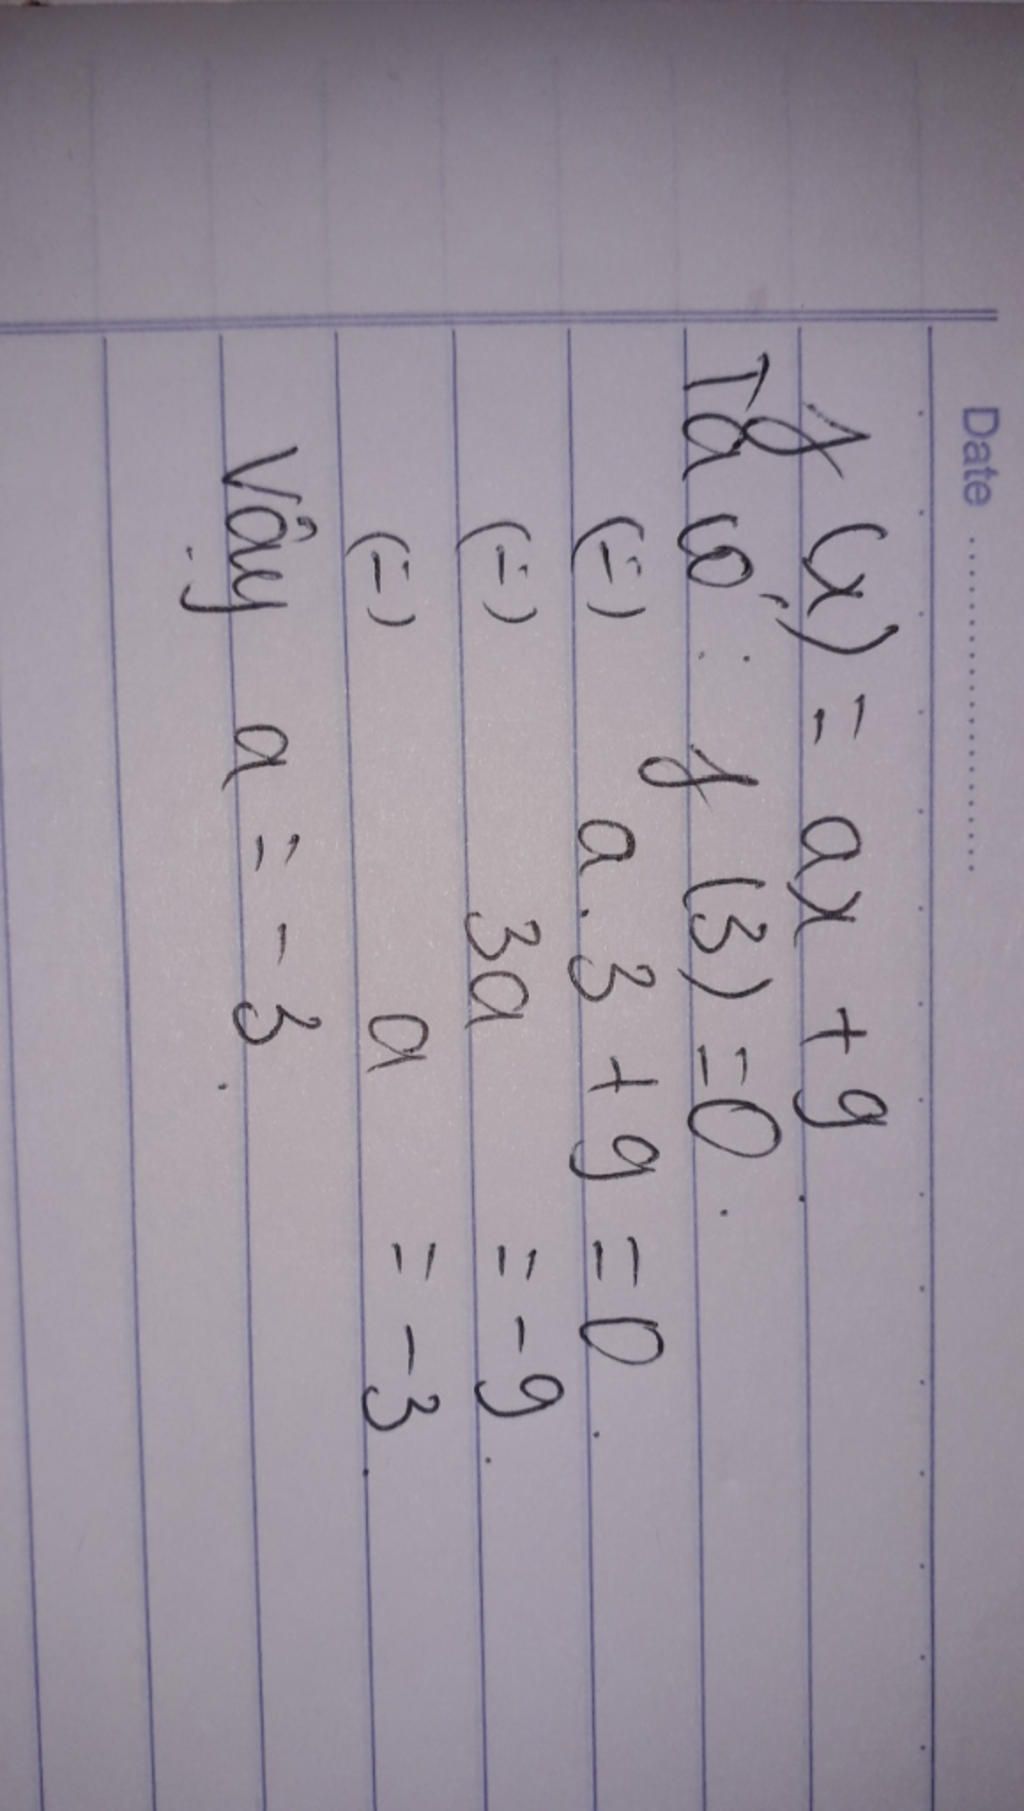 Date ....................
f (x) = ax + 9
Ta có : f (3) = 0 .
(=) a . 3 + 9 = 0 .
(=) 3a = - 9 .
(=) a = - 3 .
Vậy a = - 3 .